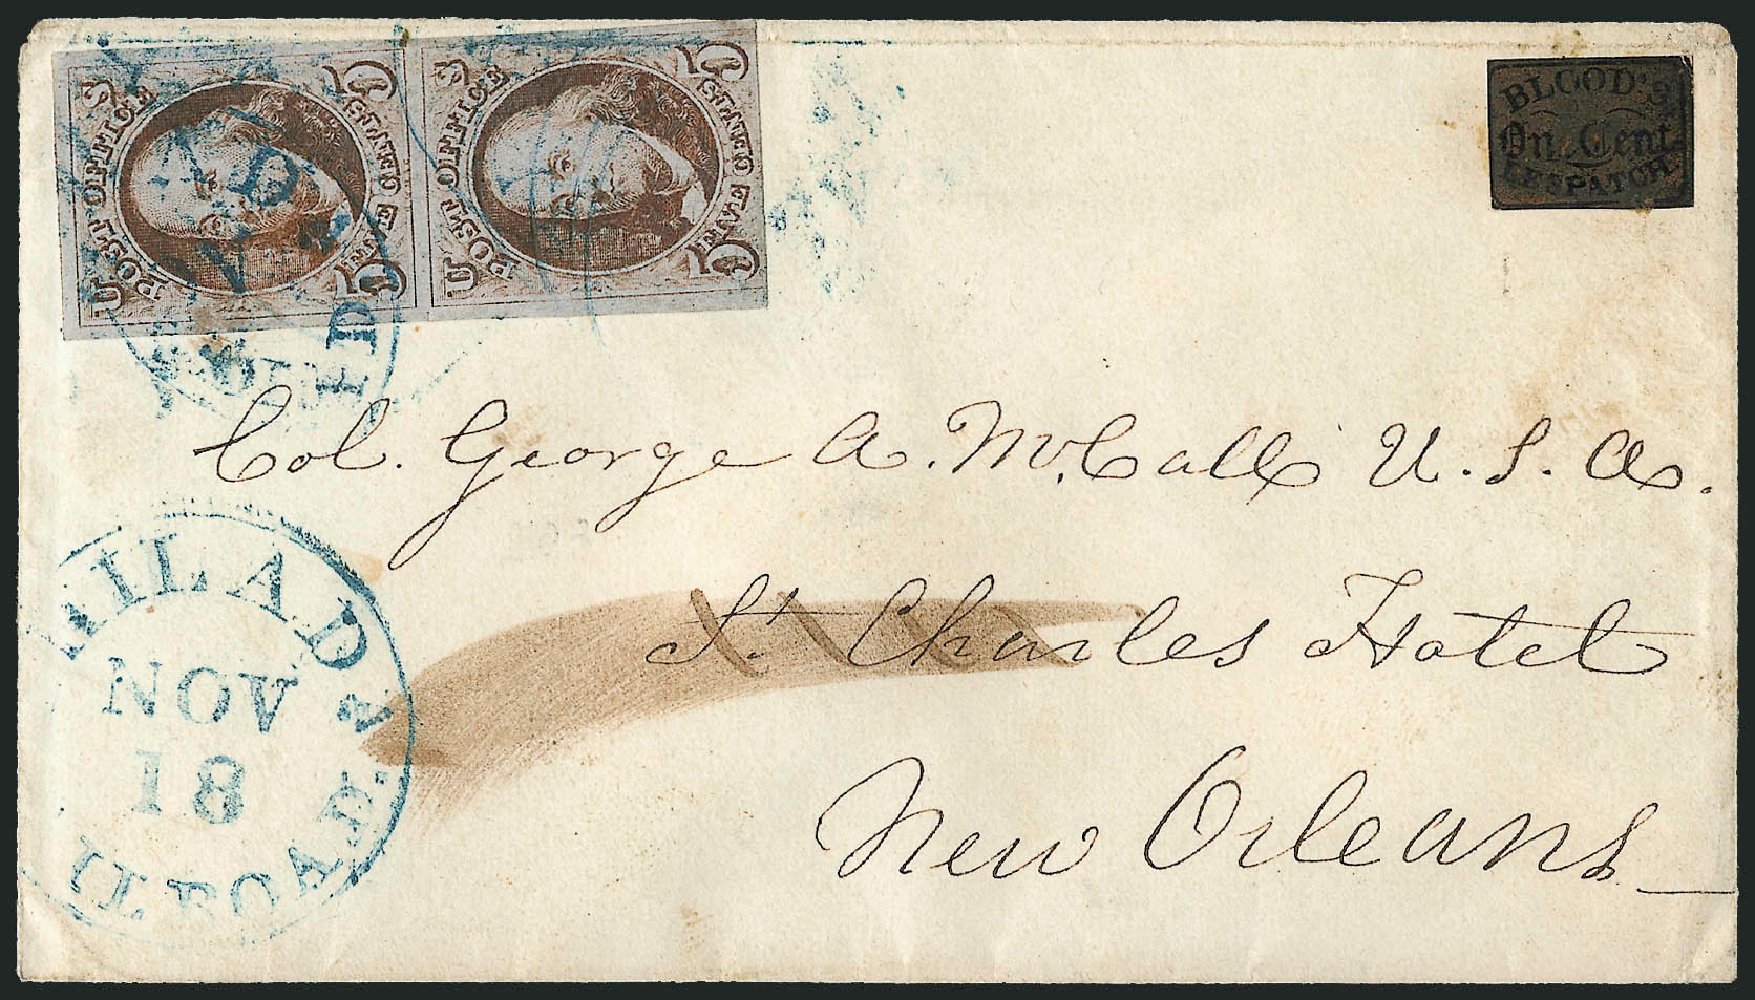 POST OFFICE
FIVE CENTS
5 5
POST OFFICE
FIVE CENTS
5 5
BLOOD'S
On Cent
DESPATCH
Col. George A. McCall U.S.A.
St. Charles Hotel
New Orleans
PHILADA
NOV
18
RAILROAD